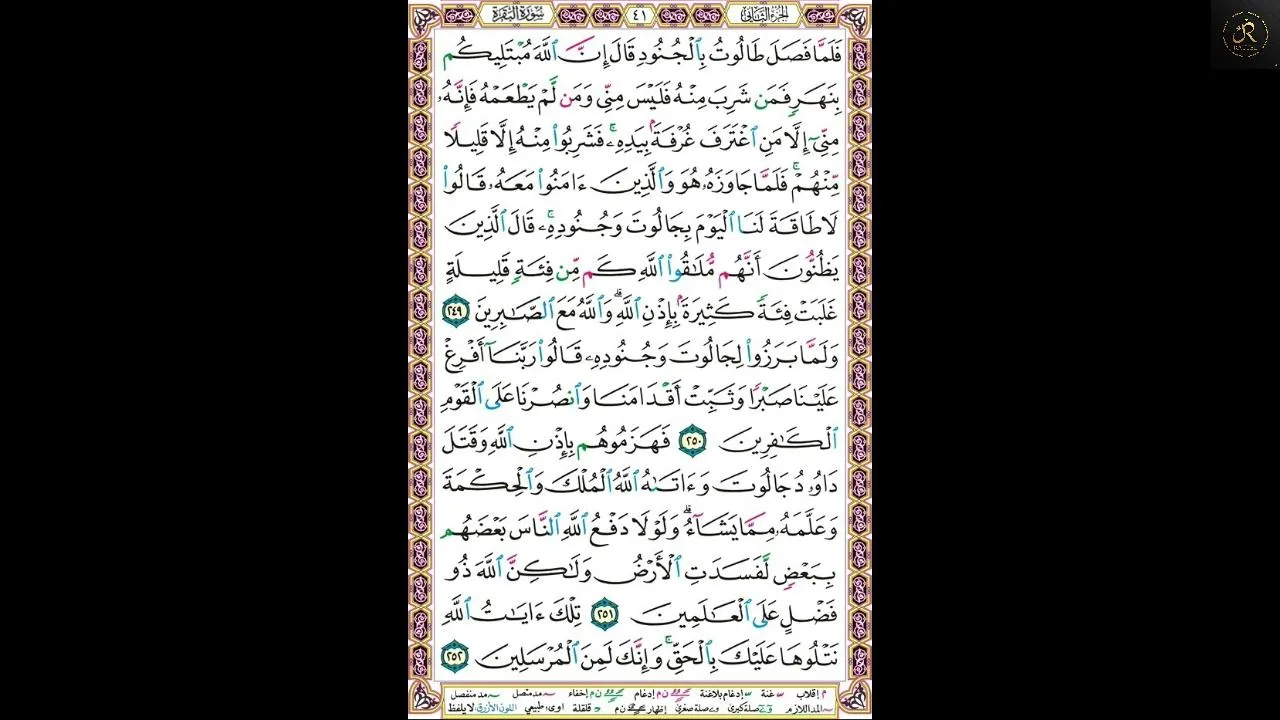 الجزء الثاني ٤١ سورة البقرة
فَلَمَّا فَصَلَ طَالُوتُ بِٱلْجُنُودِ قَالَ إِنَّ ٱللَّهَ مُبْتَلِيكُم
بِنَهَرٍ فَمَن شَرِبَ مِنْهُ فَلَيْسَ مِنِّي وَمَن لَّمْ يَطْعَمْهُ فَإِنَّهُۥ
مِنِّيٓ إِلَّا مَنِ ٱغْتَرَفَ غُرْفَةَۢ بِيَدِهِۦۚ فَشَرِبُوا۟ مِنْهُ إِلَّا قَلِيلًا
مِّنْهُمْۚ فَلَمَّا جَاوَزَهُۥ هُوَ وَٱلَّذِينَ ءَامَنُوا۟ مَعَهُۥ قَالُوا۟
لَا طَاقَةَ لَنَا ٱلْيَوْمَ بِجَالُوتَ وَجُنُودِهِۦۚ قَالَ ٱلَّذِينَ
يَظُنُّونَ أَنَّهُم مُّلَٰقُوا۟ ٱللَّهِ كَم مِّن فِئَةٍ قَلِيلَةٍ
غَلَبَتْ فِئَةً كَثِيرَةَۢ بِإِذْنِ ٱللَّهِۗ وَٱللَّهُ مَعَ ٱلصَّٰبِرِينَ ٢٤٩
وَلَمَّا بَرَزُوا۟ لِجَالُوتَ وَجُنُودِهِۦ قَالُوا۟ رَبَّنَآ أَفْرِغْ
عَلَيْنَا صَبْرًا وَثَبِّتْ أَقْدَامَنَا وَٱنصُرْنَا عَلَى ٱلْقَوْمِ
ٱلْكَٰفِرِينَ ٢٥٠ فَهَزَمُوهُم بِإِذْنِ ٱللَّهِ وَقَتَلَ
دَاوُۥدُ جَالُوتَ وَءَاتَىٰهُ ٱللَّهُ ٱلْمُلْكَ وَٱلْحِكْمَةَ
وَعَلَّمَهُۥ مِمَّا يَشَآءُۗ وَلَوْلَا دَفْعُ ٱللَّهِ ٱلنَّاسَ بَعْضَهُم
بِبَعْضٍ لَّفَسَدَتِ ٱلْأَرْضُ وَلَٰكِنَّ ٱللَّهَ ذُو
فَضْلٍ عَلَى ٱلْعَٰلَمِينَ ٢٥١ تِلْكَ ءَايَٰتُ ٱللَّهِ
نَتْلُوهَا عَلَيْكَ بِٱلْحَقِّۚ وَإِنَّكَ لَمِنَ ٱلْمُرْسَلِينَ ٢٥٢
م إقلاب غنة إدغام بلاغنة ن م إدغام ن م إخفاء مد متصل مد منفصل
المد اللازم صلة كبرى صلة صغرى إظهار ن م قلقلة طبيعي اللون الأزرق لا يلفظ